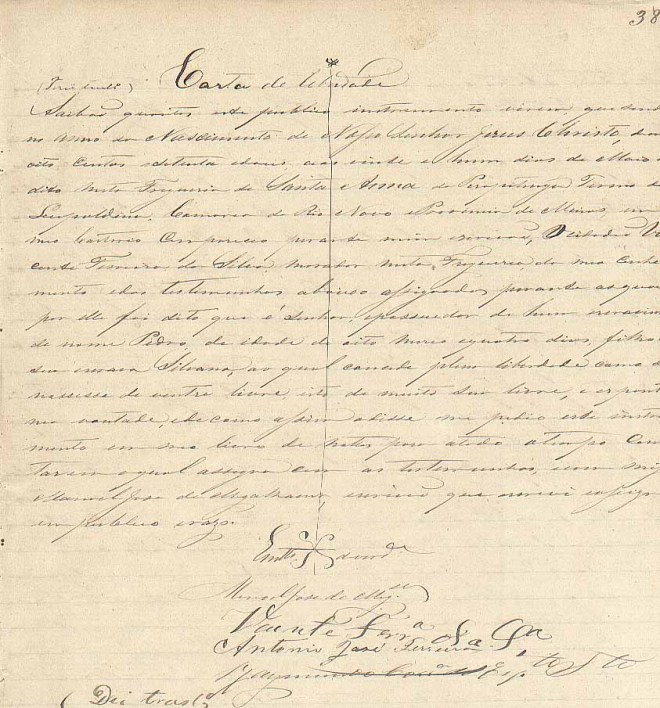 38
Carta de liberdade
Saibão quantos este publico instrumento virem que sendo
no Anno do Nascimento de Nosso Senhor Jesus Christo, de mil
oito centos setenta e dous aos vinte e hum dias de Maio
dito nesta Freguezia de Santa Anna do Pirapetinga Termo da
Leopoldina, Comarca do Rio Novo Provincia de Minas, em
meu Cartorio Compareceo perante mim escrivão, o cidadão Vi
cente Ferreira da Silva morador nesta Freguezia, do meu conhe
mento e das testemunhas abaixo assignadas perante as quaes
por elle foi dito que é Senhor, e possuedor de hum
de nome Pedro, de idade de oito meses e quatro dias, filho
sua escrava Silvana, ao qual concede plena liberdade como se
nascesse de ventre livre, isto de muito sua livre, e esponta
nea vontade, e de como assim o disse me pedio este instru
mento em meu livro de notas para a todo a tempo Cons
tarem o qual assigna com as testemunhas, com migo
Manoel José de Magalhaens, escrivão que escrevi e assigno
em publico e razo.
Em da verde
Manoel José de Mag.es
Vicente Ferr.a da S.a
Antonio José Ferreira